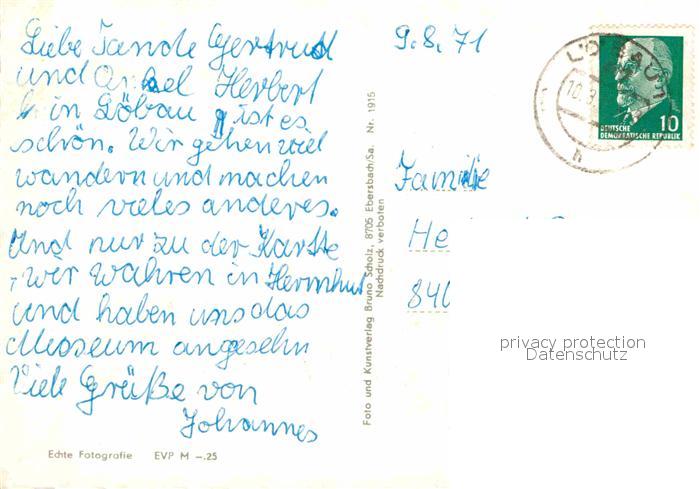 Liebe Tande Gertrud
und Onkel Herbert
in Löbau ist es
schön. Wir gehen viel
wandern und machen
noch vieles anderes.
Und nur zu der Karte
, wir wahren in Herrnhut
und haben uns das
Museum angesehn
Viele Grüße von
Johannes
Echte Fotografie EVP M -.25
Foto und Kunstverlag Bruno Scholz, 8705 Ebersbach/Sa. Nr. 1915
Nachdruck verboten
9.8.71
LÖBAU 1
10.8.
DEUTSCHE
DEMOKRATISCHE REPUBLIK
10
h
Familie
He
840
privacy protection
Datenschutz